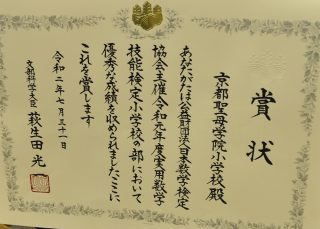 賞状
京都聖母学院小学校殿
あなたがたは公益財団法人日本数学検定
協会主催令和元年度実用数学
技能検定小学校の部において
優秀な成績を収められましたここに
これを賞します
令和二年七月三十一日
文部科学大臣 萩生田光一